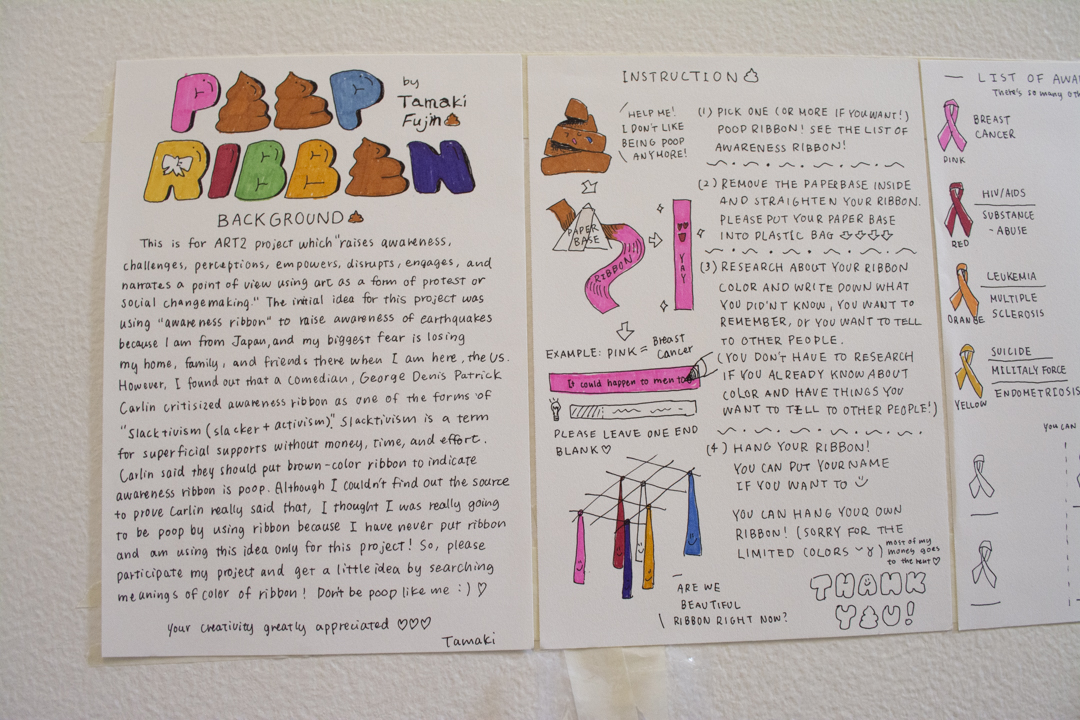 POOP
RIBBON
by
Tamaki
Fujino
BACKGROUND
This is for ART2 project which "raises awareness,
challenges, perceptions, empowers, disrupts, engages, and
narrates a point of view using art as a form of protest or
social changemaking." The initial idea for this project was
using "awareness ribbon" to raise awareness of earthquakes
because I am from Japan, and my biggest fear is losing
my home, family, and friends there when I am here, the US.
However, I found out that a comedian, George Denis Patrick
Carlin critisized awareness ribbon as one of the forms of
"Slacktivism (slacker + activism)." Slacktivism is a term
for superficial supports without money, time, and effort.
Carlin said they should put brown-color ribbon to indicate
awareness ribbon is poop. Although I couldn't find out the source
to prove Carlin really said that, I thought I was really going
to be poop by using ribbon because I have never put ribbon
and am using this idea only for this project! So, please
participate my project and get a little idea by searching
meanings of color of ribbon! Don't be poop like me :) ♡
Your creativity greatly appreciated ♡♡♡
Tamaki
INSTRUCTION
HELP ME!
I DON'T LIKE
BEING POOP
ANYMORE!
PAPER
BASE
RIBBON
YAY
EXAMPLE: PINK = Breast
Cancer
It could happen to men too
PLEASE LEAVE ONE END
BLANK ♡
ARE WE
BEAUTIFUL
RIBBON RIGHT NOW?
(1) PICK ONE (OR MORE IF YOU WANT!)
POOP RIBBON! SEE THE LIST OF
AWARENESS RIBBON!
(2) REMOVE THE PAPERBASE INSIDE
AND STRAIGHTEN YOUR RIBBON.
PLEASE PUT YOUR PAPER BASE
INTO PLASTIC BAG ⇩⇩⇩⇩
(3) RESEARCH ABOUT YOUR RIBBON
COLOR AND WRITE DOWN WHAT
YOU DIDN'T KNOW, YOU WANT TO
REMEMBER, OR YOU WANT TO TELL
TO OTHER PEOPLE.
(YOU DON'T HAVE TO RESEARCH
IF YOU ALREADY KNOW ABOUT
COLOR AND HAVE THINGS YOU
WANT TO TELL TO OTHER PEOPLE!)
(4) HANG YOUR RIBBON!
YOU CAN PUT YOUR NAME
IF YOU WANT TO
YOU CAN HANG YOUR OWN
RIBBON! (SORRY FOR THE
LIMITED COLORS)
most of my
money goes
to the rent ♡
THANK
YOU!
— LIST OF AWA
There's so many oth
PINK
BREAST
CANCER
RED
HIV/AIDS
SUBSTANCE
-ABUSE
ORANBE
LEUKEMIA
MULTIPLE
SCLEROSIS
YELLOW
SUICIDE
MILITALY FORCE
ENDOMETRIOSIS
YOU CAN